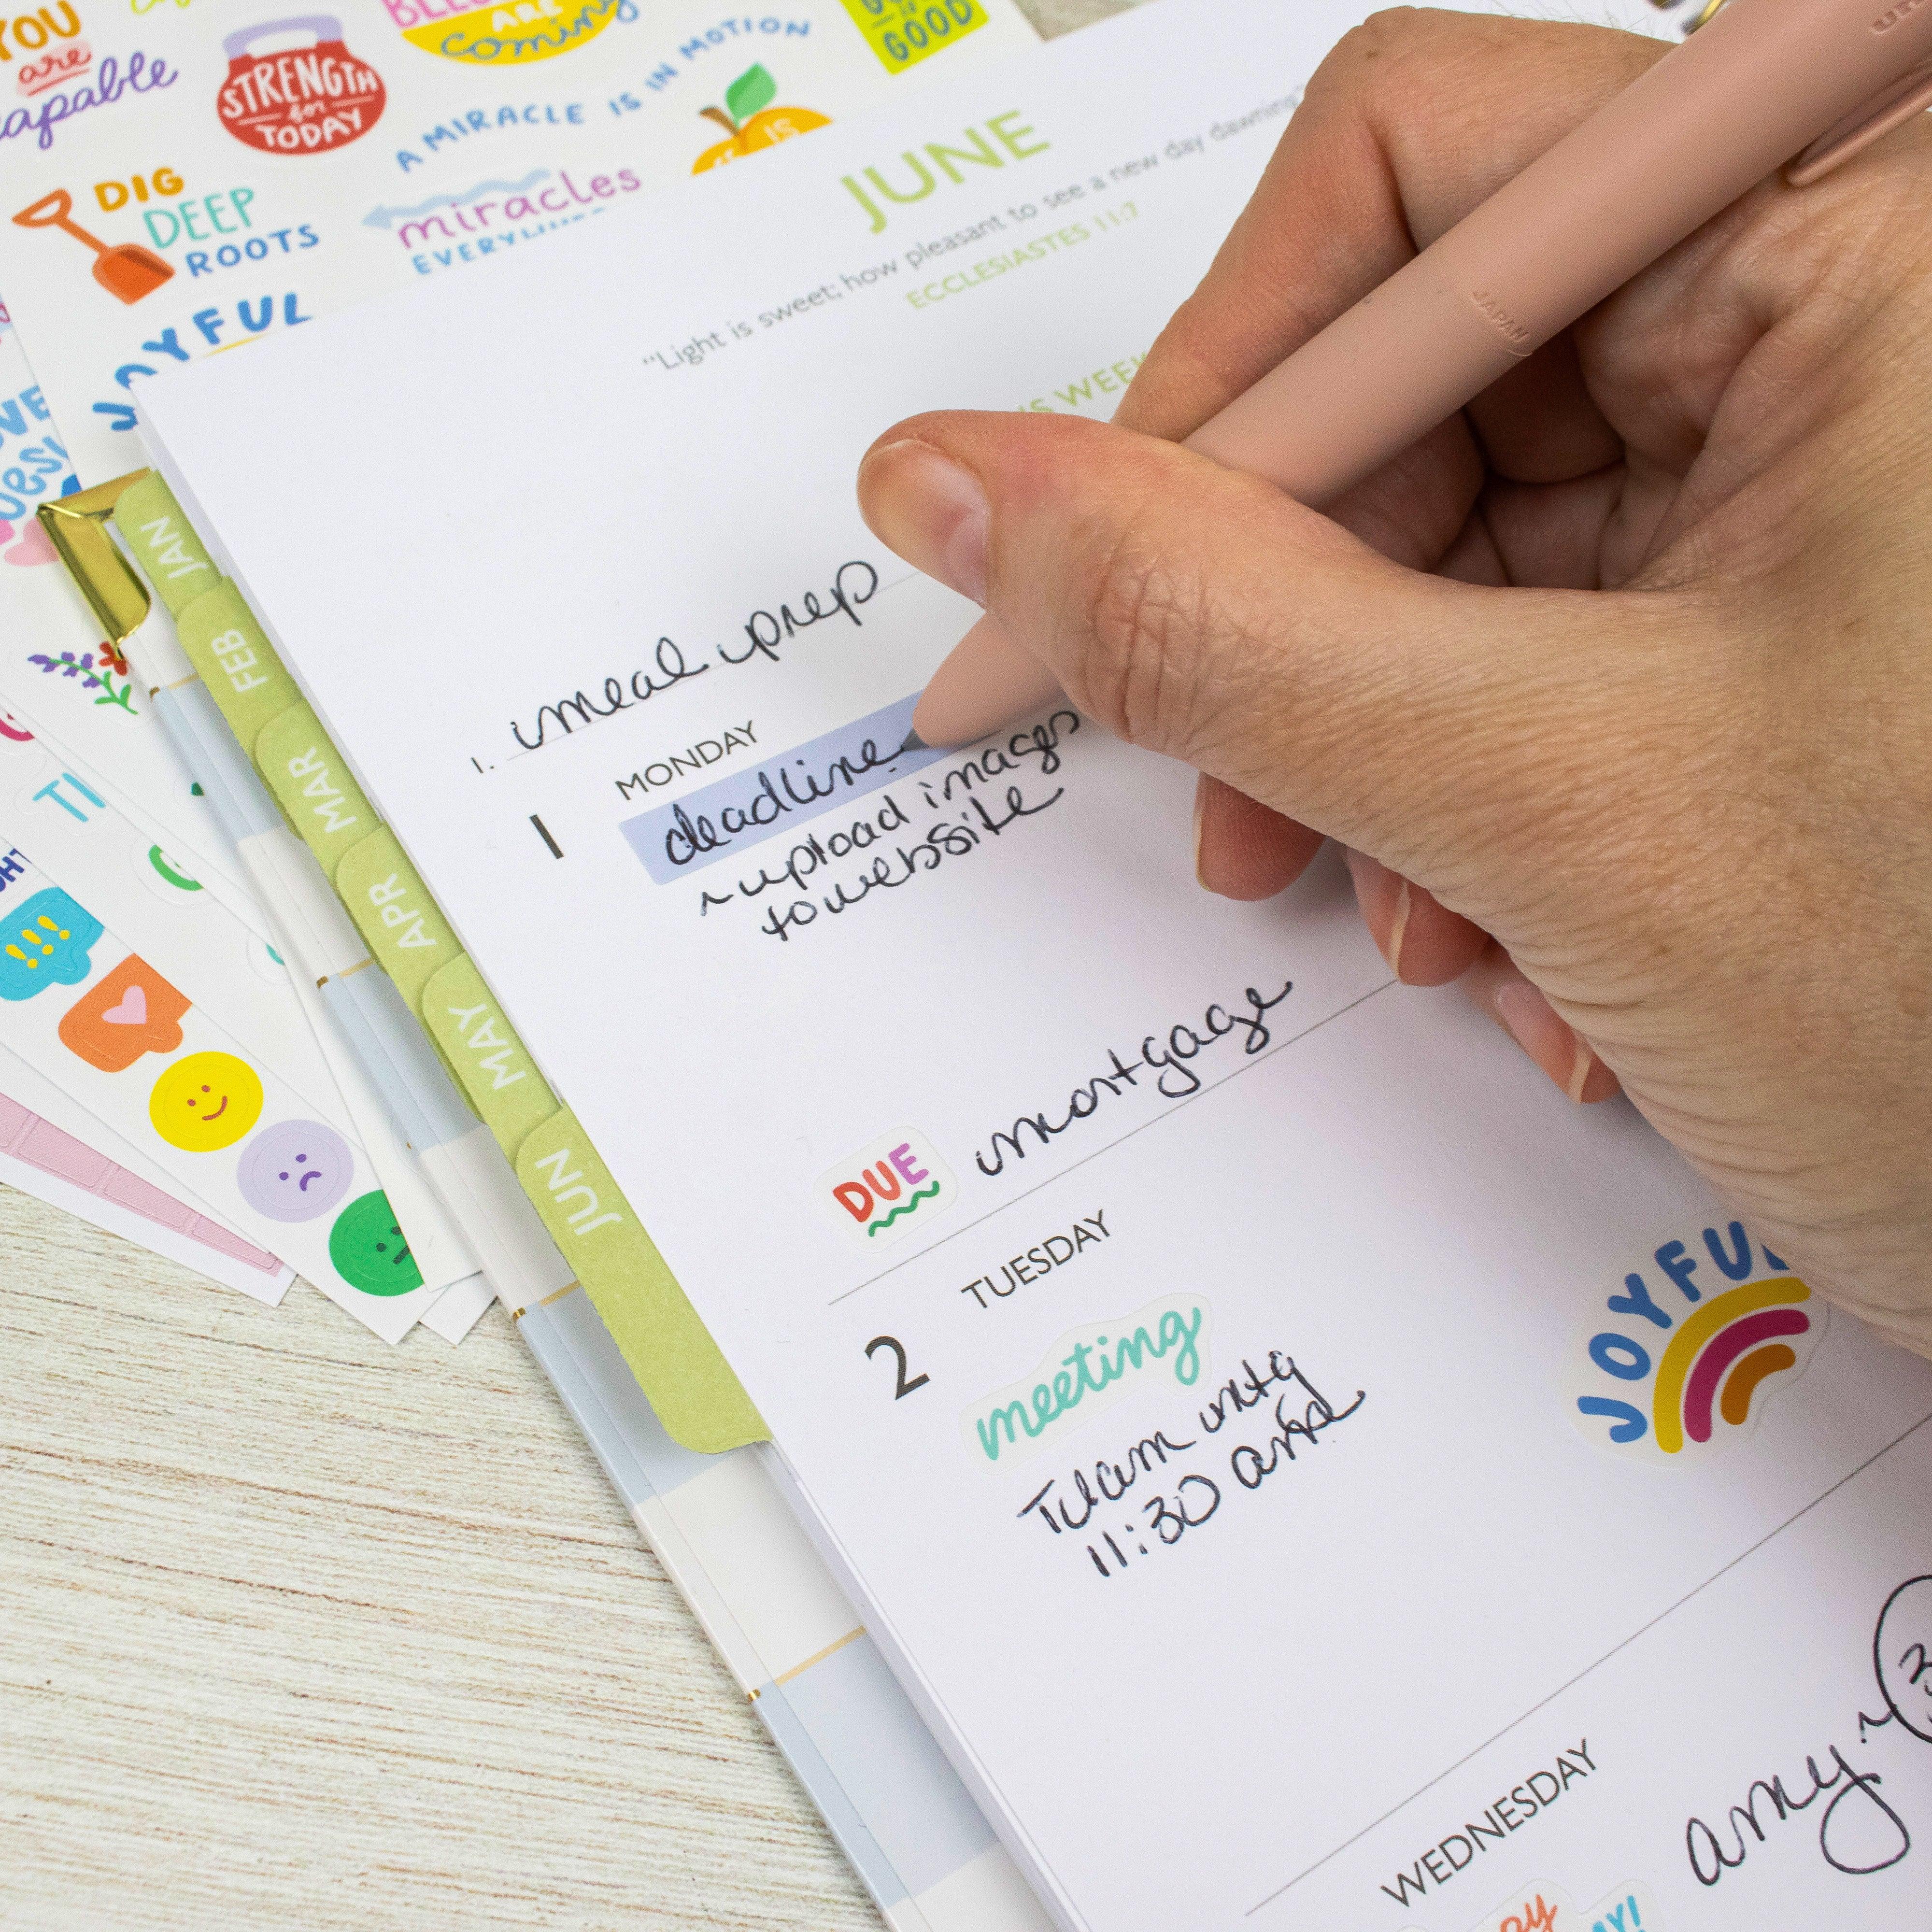 YOU
are
capable
STRENGTH
for
TODAY
ARE
coming
GOOD
A MIRACLE IS IN MOTION
DIG
DEEP
ROOTS
miracles
IS
JOYFUL
JUNE
"Light is sweet; how pleasant to see a new day dawning."
ECCLESIASTES 11:7
WEEK
1. meal prep
JAN
FEB
MAR
APR
MAY
JUN
MONDAY
1
deadline
~ upload images
to website
DUE mortgage
TUESDAY
2
meeting
Team mtg
11:30 am
JOYFUL
WEDNESDAY
amy ~ 3
!!!
JAPAN